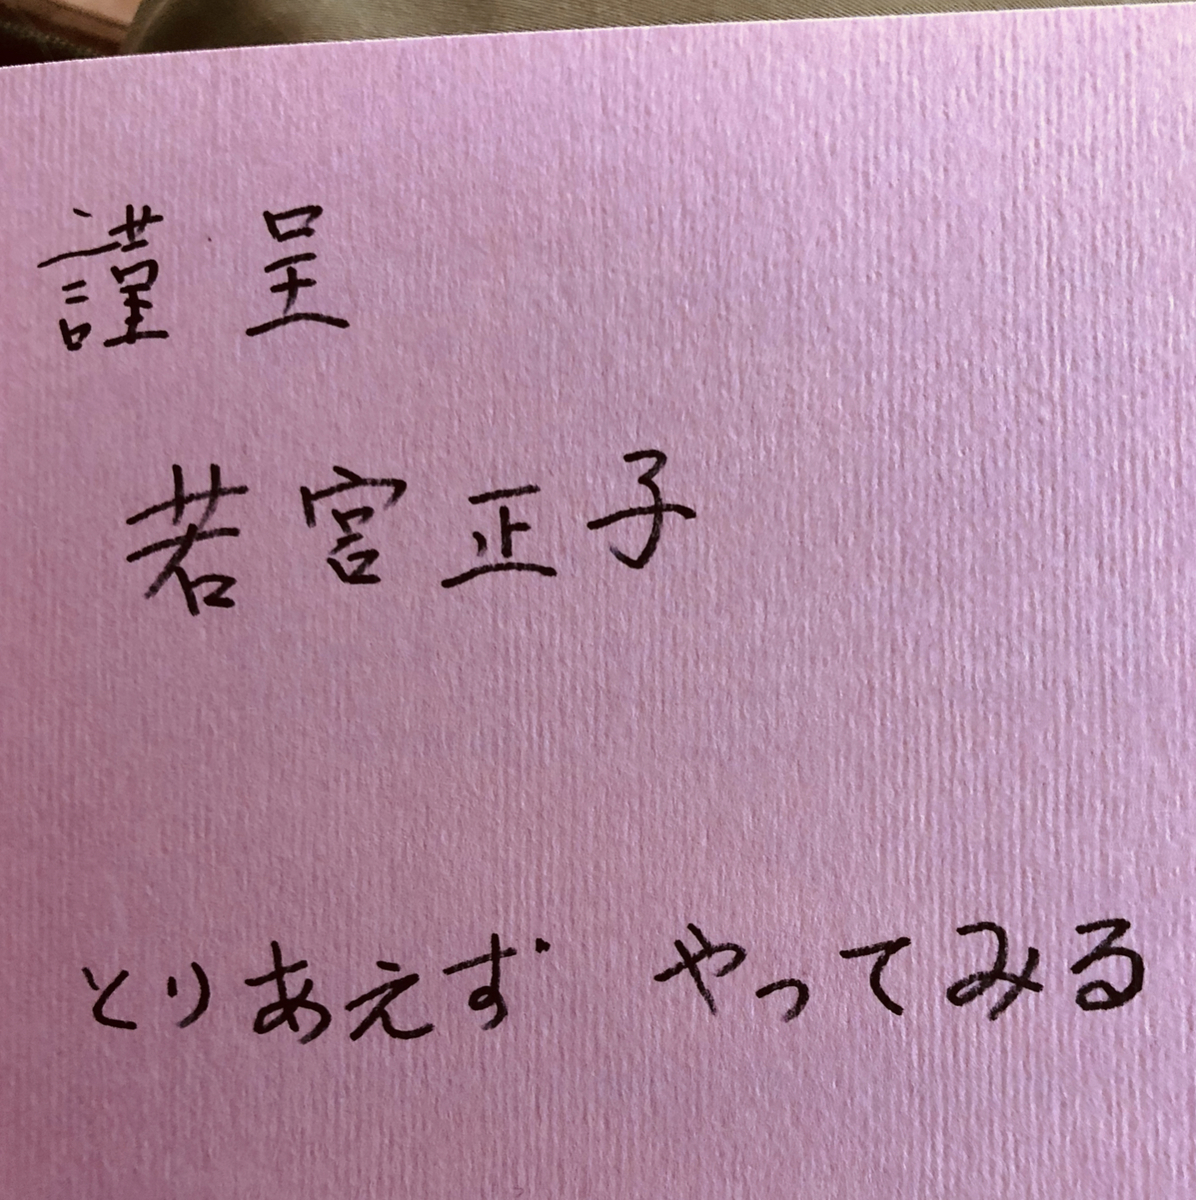 謹呈
若宮正子
とりあえず やってみる